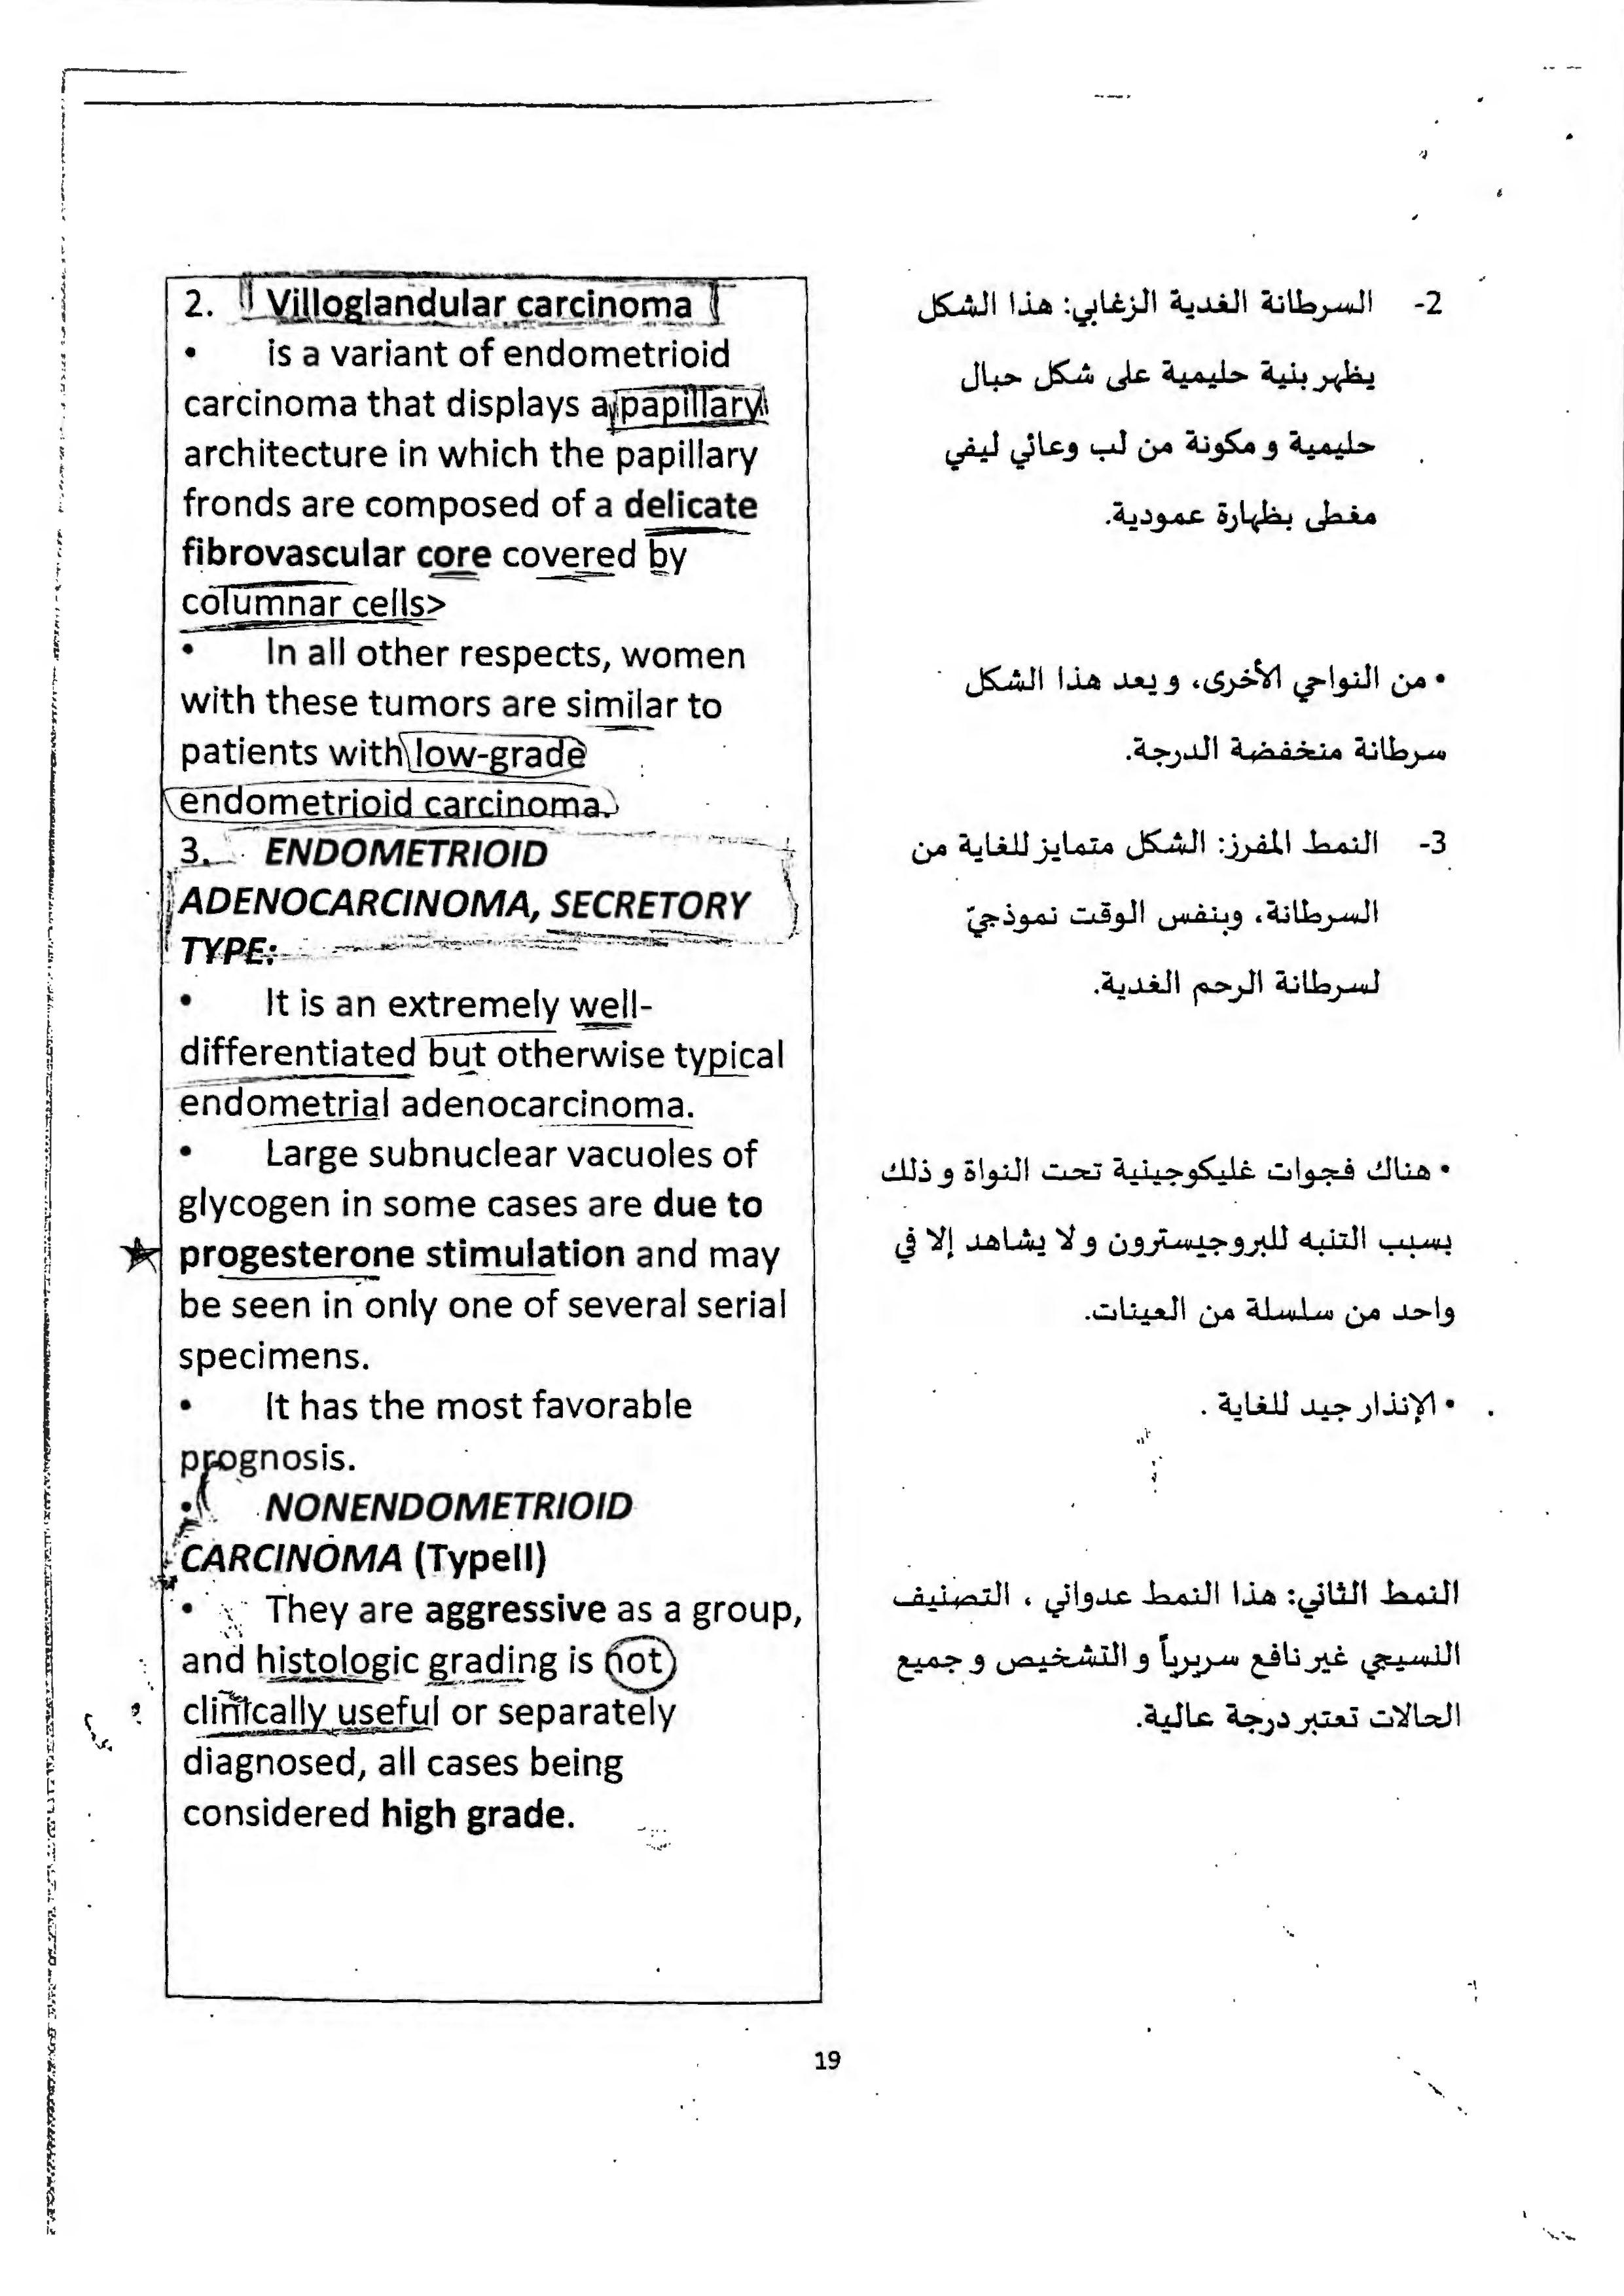 2. Villoglandular carcinoma
• is a variant of endometrioid
carcinoma that displays a papillary
architecture in which the papillary
fronds are composed of a delicate
fibrovascular core covered by
columnar cells>
• In all other respects, women
with these tumors are similar to
patients with low-grade
endometrioid carcinoma.
3. ENDOMETRIOID
ADENOCARCINOMA, SECRETORY
TYPE:
• It is an extremely well-
differentiated but otherwise typical
endometrial adenocarcinoma.
• Large subnuclear vacuoles of
glycogen in some cases are due to
progesterone stimulation and may
be seen in only one of several serial
specimens.
• It has the most favorable
prognosis.
• NONENDOMETRIOID
CARCINOMA (TypeII)
• They are aggressive as a group,
and histologic grading is not
clinically useful or separately
diagnosed, all cases being
considered high grade.
2- السرطانة الغدية الزغابي: هذا الشكل
يظهر بنية حليمية على شكل حبال
حليمية و مكونة من لب وعائي ليفي
مغطى بظهارة عمودية.
• من النواحي الأخرى، و يعد هذا الشكل
سرطانة منخفضة الدرجة.
3- النمط المفرز: الشكل متمايز للغاية من
السرطانة، وبنفس الوقت نموذجيّ
لسرطانة الرحم الغدية.
• هناك فجوات غليكوجينية تحت النواة و ذلك
بسبب التنبه للبروجيسترون و لا يشاهد إلا في
واحد من سلسلة من العينات.
• الإنذار جيد للغاية .
النمط الثاني: هذا النمط عدواني ، التصنيف
النسيجي غير نافع سريرياً و التشخيص و جميع
الحالات تعتبر درجة عالية.
19